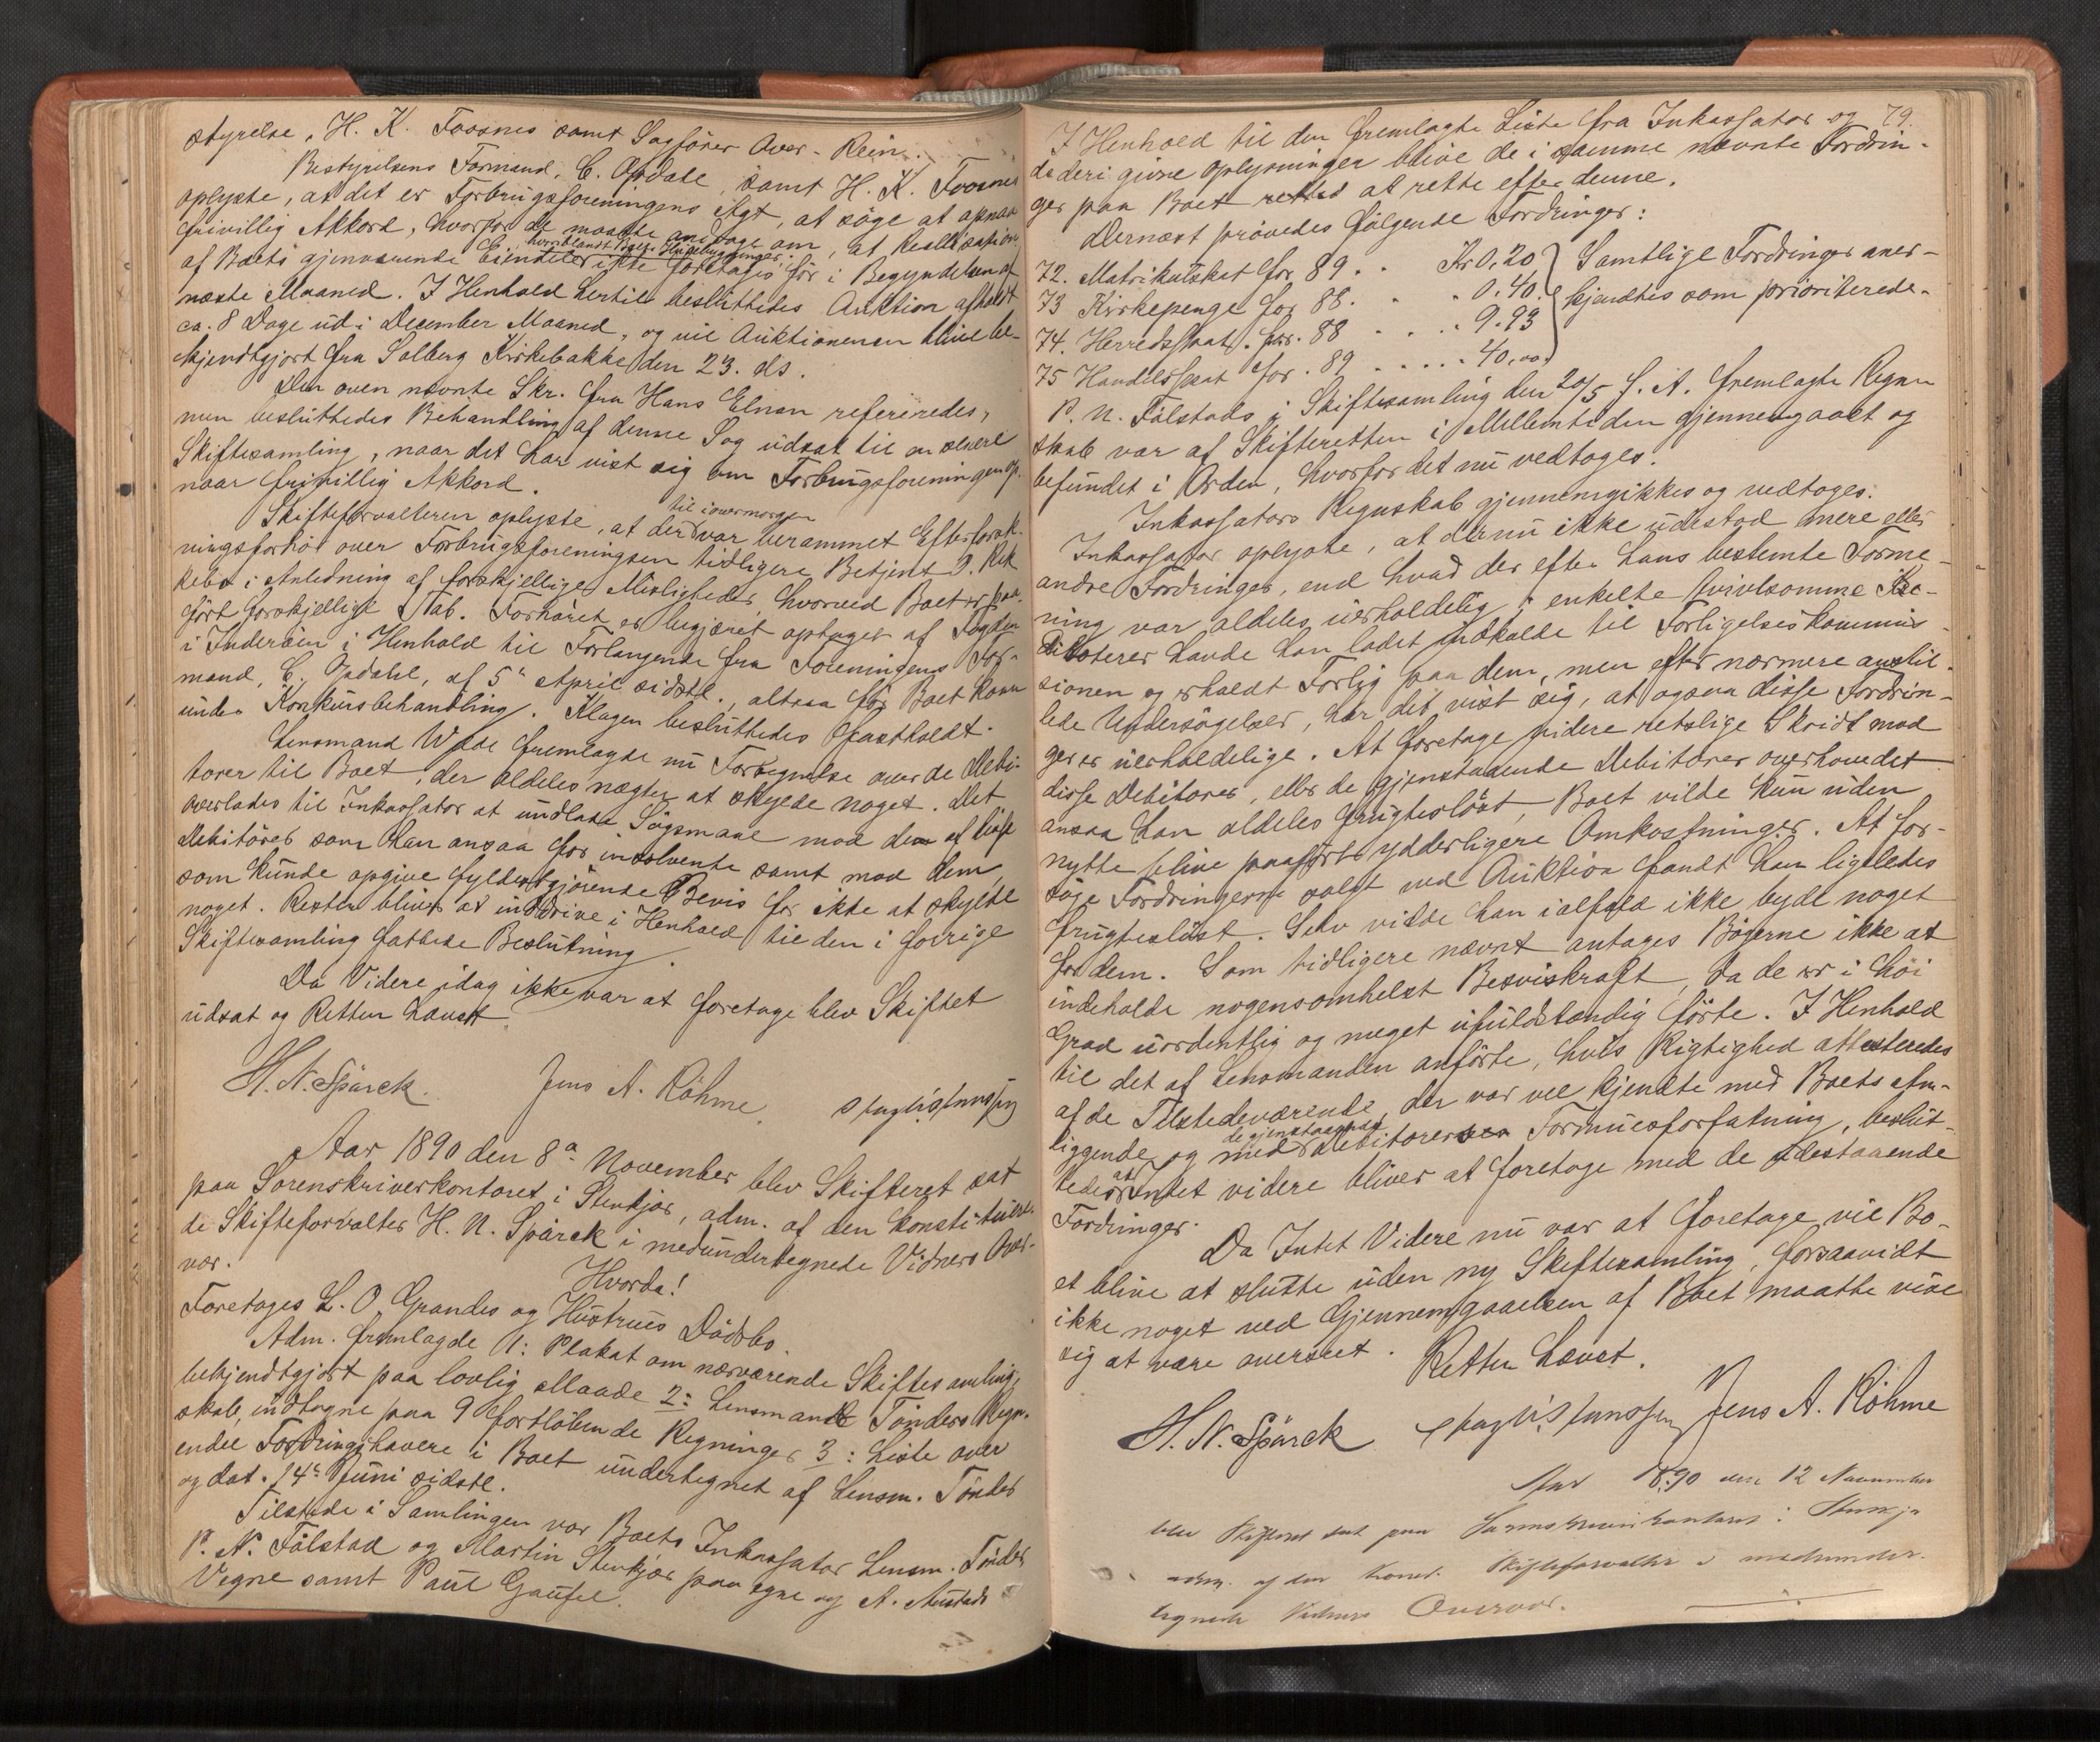 styrelse, H. K. Foosnes samt Sagfører Over-Rein.
Bestyrelsens Formand, C. Opdahl, samt H. K. Foosnes
oplyste, at det er Forbrugsforeningens Agt, at søge at opnaa
frivillig Akkord, hvorfor de maatte andrage om, at Realisation
af Boets gjenværende Eiendeler, hvoriblandt Boets Husebygninger, ikke foretages før i Begyndelsen af
næste Maaned. I Henhold hertil besluttedes Auktion afholdt
ca. 8 Dage ud i December Maaned, og vil Auktionen blive be-
kjendtgjort fra Solberg Kirkebakke den 23. ds.
Den oven nævnte Skr. fra Hans Elnan refereredes,
men besluttedes Behandling af denne Sag udsat til en senere
Skiftesamling, naar det har vist sig om Forbrugsforeningen op-
naar frivillig Akkord.
til iovermorgen
Skifteforvalteren oplyste, at der var berammet Efterforsk-
ningsforhør over Forbrugsforeningsen tidligere Betjent O. Rek
kebo i Anledning af forskjellige Misligheder, hvorved Boet er paa-
ført forskjellige Tab. Forhøret er begjæret optaget af Fogden
i Inderøen i Henhold til Forlangende fra Foreningens For-
mand, C. Opdahl, af 5te April sidstl., altsaa før Boet kom
under Konkursbehandling. Klagen besluttedes fastholdt.
Lensmand Wade fremlagde nu Fortegnelse over de Debi-
torer til Boet, der aldeles nægter at skylde noget. Det
overlades til Inkassator at undlade Søgsmaal mod dem af disse
Debitorer som han ansaa for insolvente samt mod dem,
som kunde opgive fyldestgjørende Bevis for ikke at skylde
noget. Resten bliver at inddrive i Henhold til den i forrige
Skiftesamling fattede Beslutning.
Da Videre idag ikke var at foretage blev Skiftet
udsat og Retten hævet.
H. N. Spärck. Jens A. Röhme.
Aar 1890 den 8de November blev Skifteret sat
paa Sorenskriverkontoret i Stenkjær, adm. af den konstituere-
de Skifteforvalter H. N. Spärck i medundertegnede Vidners Over-
vær.
Hvorda!
Foretoges L. O. Grandes og Hustrues Dødsbo.
Adm. fremlagde 1: Plakat om nærværende Skiftesamling,
bekjendtgjort paa lovlig Maade 2: Lensmand Tønders Regn-
skab, indtagne paa 9 fortløbende Regninger 3: Liste over
endel Fordringshavere i Boet undertegnet af Lensm. Tønder
og dat. 14de Juni sidstl.
Tilstede i Samlingen var Boets Inkassator Lensm. Tønder
P. N. Følstad og Martin Stenkjær paa egne og A. Austads
Vegne samt Paul Gaufel.
79.
I Henhold til den fremlagte Liste fra Inkassator og
de deri givne Oplysninger blive de i samme nævnte Fordrin-
ger paa Boet rettet at rette efter denne.
Dernæst prøvedes følgende Fordringer:
72. Matrikulskat for 89 . . Kr 0.20 } Samtlige Fordringer aner-
73 Kirkepenge for 88 . . . 0.40 } kjendtes som prioriterede.
74. Herredsskat. for. 88 . . . 9.93
75 Handelsskat for. 89 . . . . 40.00
P. N. Følstads i Skiftesamling den 20/5 f. A. fremlagte Regn-
skab var af Skifteretten i Mellemtiden gjennemgaaet og
befundet i Orden, hvorfor det nu vedtoges.
Inkassators Regnskab gjennemgikkes og vedtoges.
Inkassator oplyste, at der nu ikke udestod mere eller
andre Fordringer, end hvad der efter hans bestemte Forme-
ning var aldeles uerholdelig; enkelte tvivlsomme Kre-
ditorer havde han ladet indkalde til Forligelseskommis-
sionen og erholdt Forlig paa dem, men efter nærmere anstil-
lede Undersøgelser, har det vist sig, at ogsaa disse Fordrin-
ger er uerholdelige. At foretage videre retslige Skridt mod
disse Debitorer, eller de gjenstaaende Debitorer overhovedet
ansaa han aldeles frugtesløst, Boet vilde kun uden
nytte blive paaført ydderligere Omkostninger. At for-
søge Fordringerne solgt ved Auktion fandt han ligeledes
frugtesløst. Selv vilde han ialfald ikke byde noget
for dem. Som tidligere nævnt antages Bøgerne ikke at
indeholde nogensomhelst Beviskraft, da de er i høi
Grad uordentlig og meget ufuldstændig førte. I Henhold
til det af Lensmanden anførte, hvis Rigtighed attesteredes
af de Tilstedeværende, der var vel kjendte med Boets An-
liggende og med de gjenstaaende Debitorers Formuesforfatning, beslut-
tedes at Intet videre bliver at foretage med de udestaaende
Fordringer.
Da Intet Videre nu var at foretage vil Bo-
et blive at slutte uden ny Skiftesamling, forsaavidt
ikke noget ved Gjennemgaaelsen af Boet maatte vise
sig at være overseet. Retten hævet.
H. N. Spärck Jens A. Röhme
Aar 1890 den 12 November
blev Skifteret sat paa Sorenskriverkontoret i Stenkjær
adm. af den konst. Skifteforvalter i medunder-
tegnede Vidners Overvær.